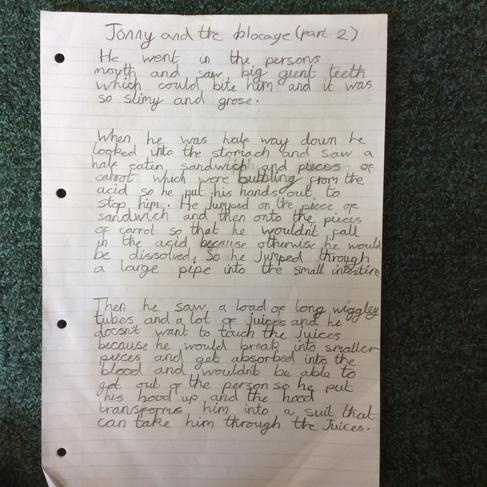 Jonny and the blocage (part 2)
He went in the persons
mouth and saw big gient teeth
which could bite him and it was
so slimy and grose.
When he was half way down he
looked into the stomach and saw a
half eaten sandwich and pieces of
carrot which were bubbling from the
acid so he put his hands out to
stop him. He jumped on the piece of
sandwich and then onto the pieces
of carrot so that he wouldn't fall
in the acid because otherwise he would
be dissolved. So he jumped through
a large pipe into the small intestine
Then he saw a load of long wiggley
tubes and a lot of juices and he
doesn't want to touch the juices
because he would break into smaller
pieces and get absorbed into the
blood and wouldn't be able to
get out of the person so he put
his hood up and the hood
transforms him into a suit that
can take him through the juices.